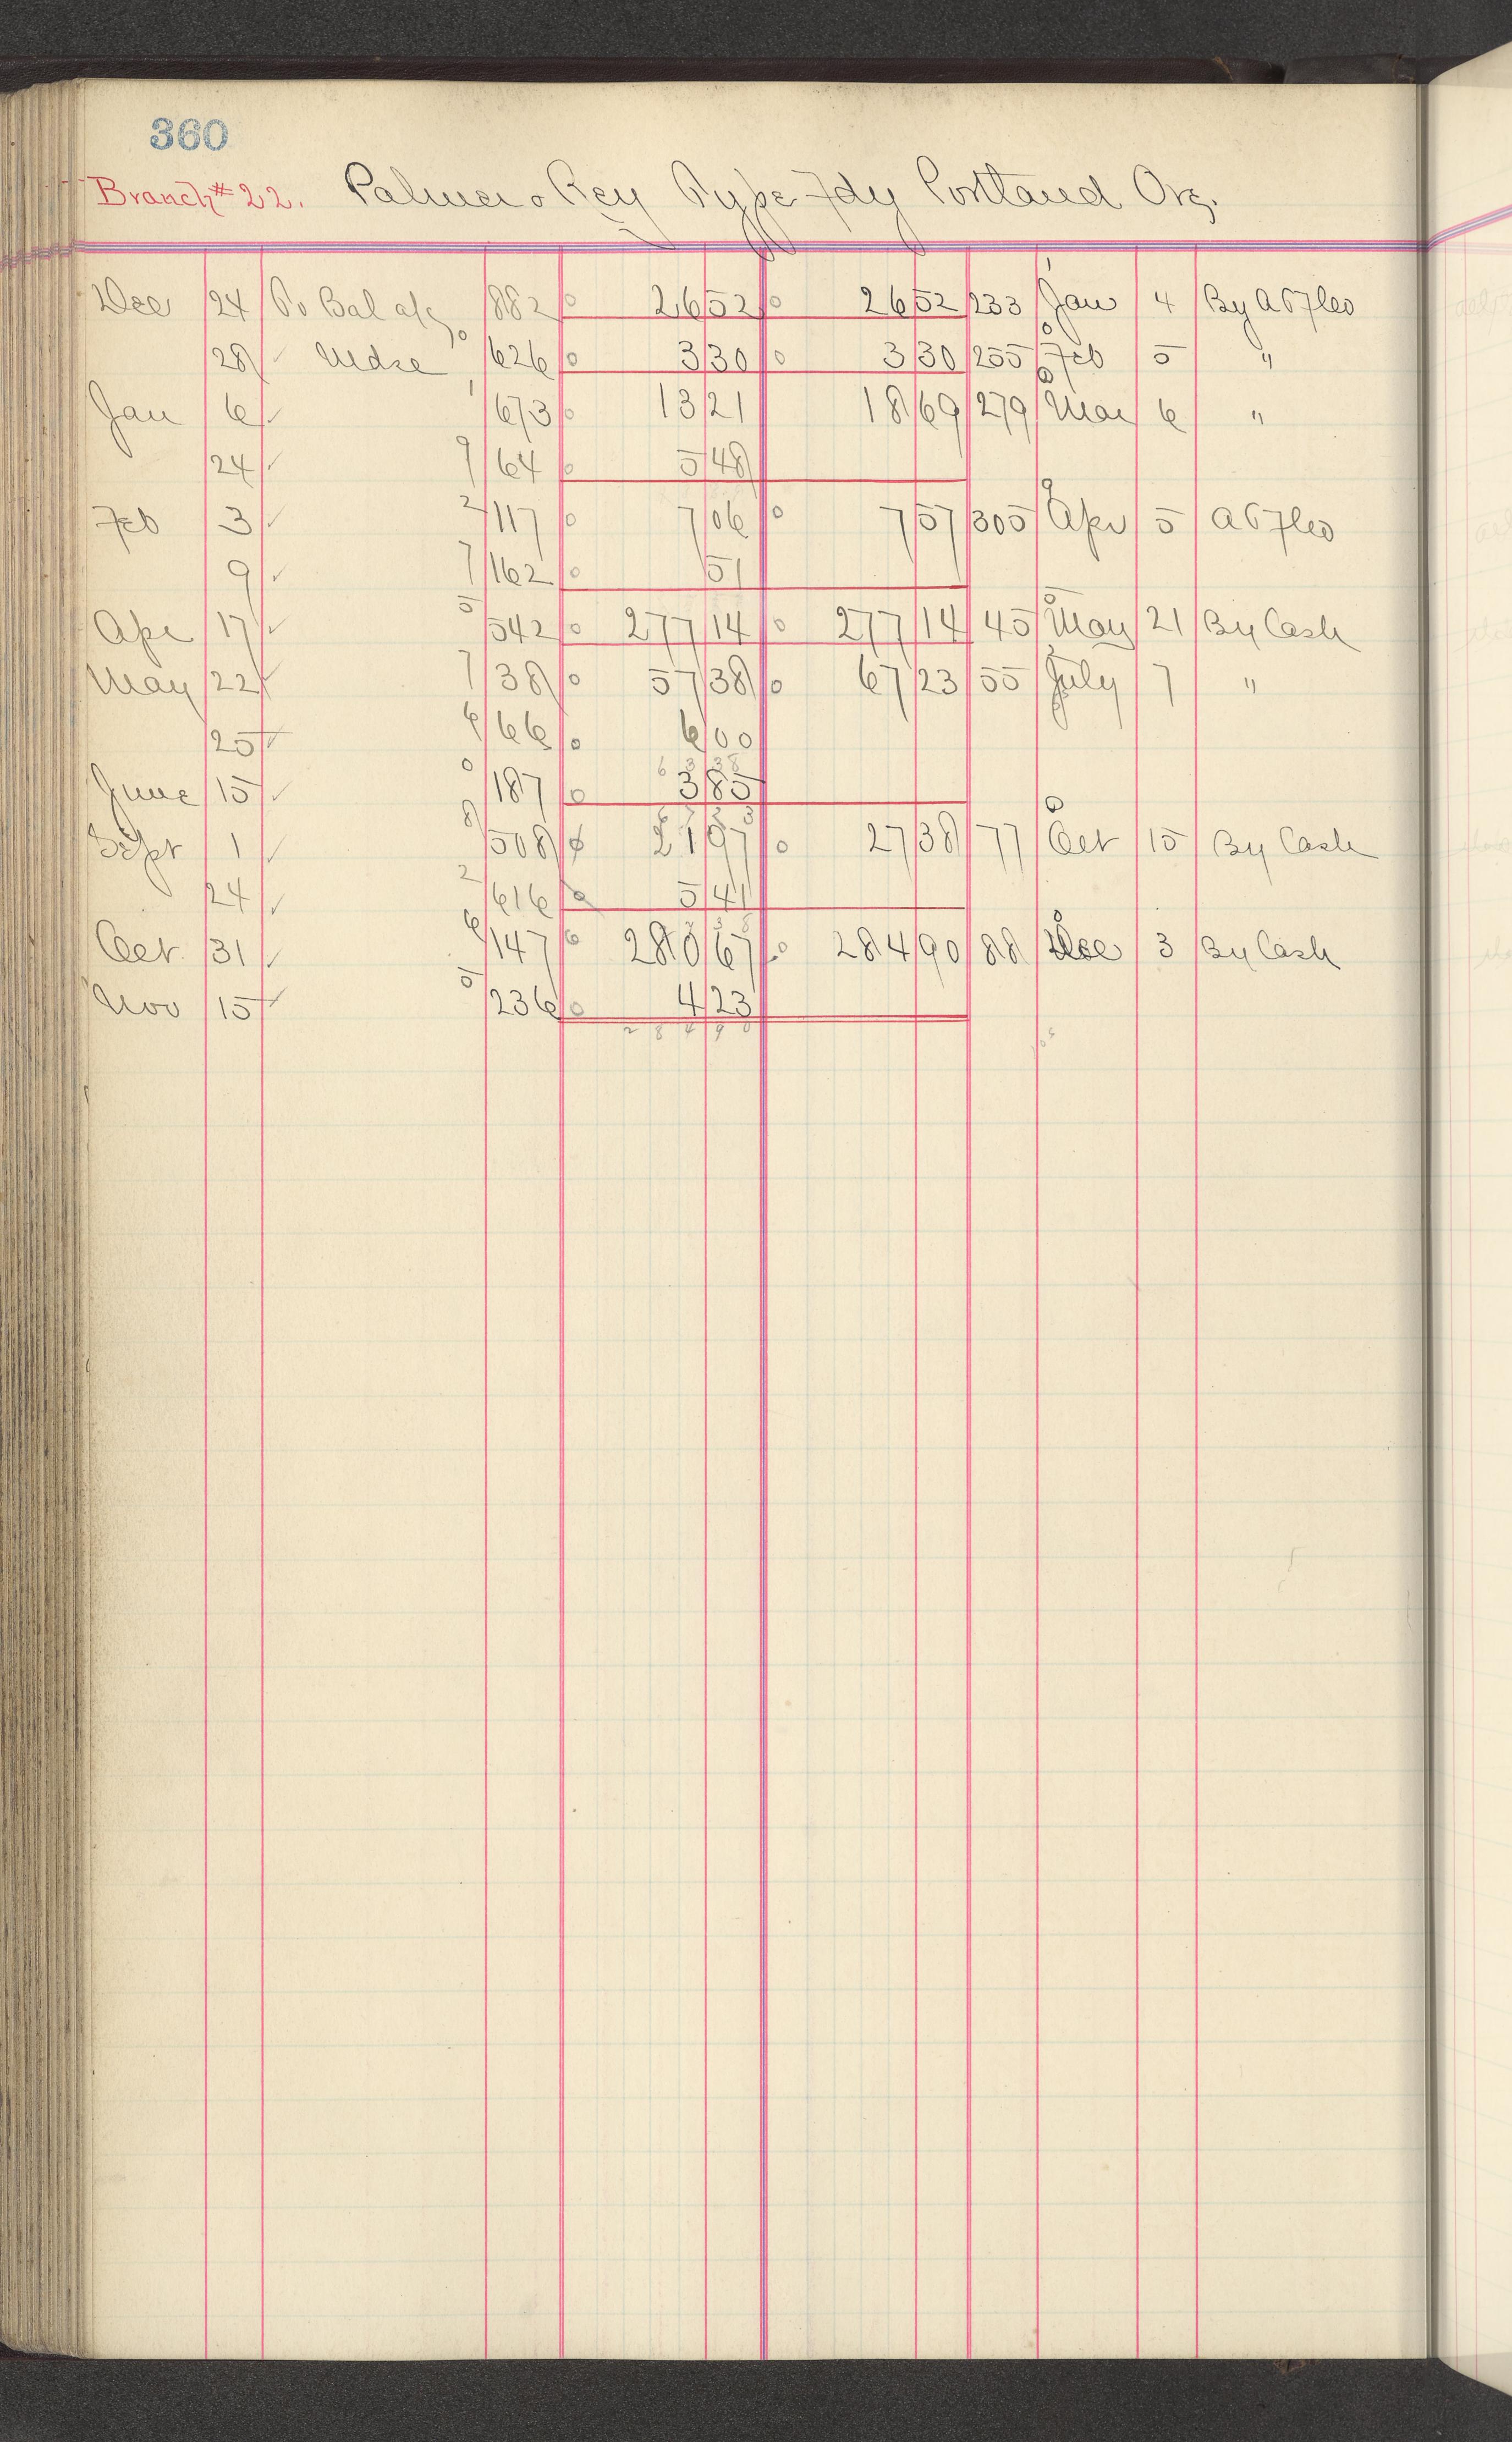 360
Branch #22. Palmer & Rey Type Fdy Portland Org.
Dec 24 To Bal a/c 882 26 52 26 52 233 Jan 4 By A T F Co
28 " Mdse 0/626 3 30 3 30 255 Feb 5 "
Jan 6 1/673 13 21 18 69 279 Mar 6 "
24 9/64 5 48
Feb 3 2/117 7 06 7 57 305 Apr 5 A T F Co
9 7/162 51
Apr 17 5/542 277 14 277 14 45 May 21 By Cash
May 22 7/38 57 38 67 23 55 July 7 "
25 6/66 6 00
June 15 0/187 3 85
Sept 1 8/508 21 97 27 38 77 Oct 15 By Cash
24 2/616 5 41
Oct 31 6/147 280 67 284 90 88 Dec 3 By Cash
Nov 15 5/236 4 23
2 8 4 9 0